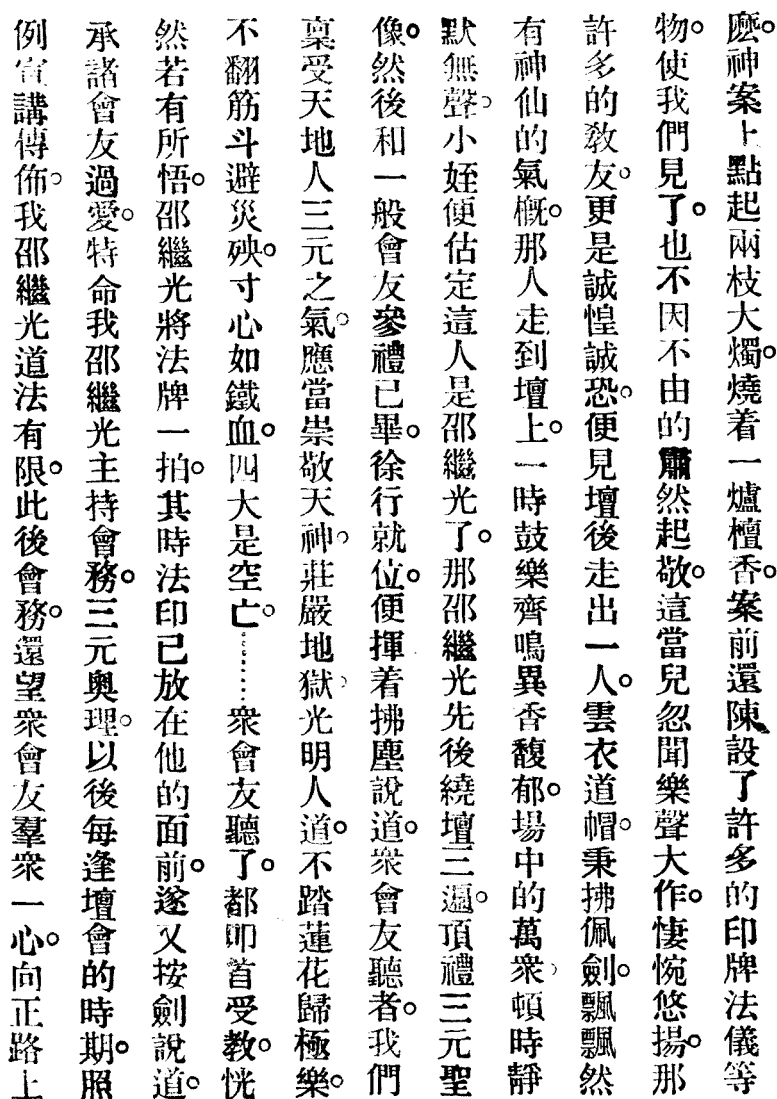 麽。神案上點起兩枝大燭。燒着一爐檀香。案前還陳設了許多的印牌法儀等
物。使我們見了。也不因不由的肅然起敬。這當兒忽聞樂聲大作。悽惋悠揚。那
許多的敎友。更是誠惶誠恐。便見壇後走出一人。雲衣道帽。秉拂佩劍。飄飄然
有神仙的氣槪。那人走到壇上。一時鼓樂齊鳴。異香馥郁。場中的萬衆。頓時靜
默無聲。小姪便估定這人是邵繼光了。那邵繼光先後繞壇三遍。頂禮三元聖
像。然後和一般會友參禮已畢。徐行就位。便揮着拂塵說道。衆會友聽者。我們
稟受天地人三元之氣。應當崇敬天神。莊嚴地獄。光明人道。不踏蓮花歸極樂。
不翻筋斗避災殃。寸心如鐵血。四大是空亡。………衆會友聽了。都叩首受教。恍
然若有所悟。邵繼光將法牌一拍。其時法印已放在他的面前。遂又按劍說道。
承諸會友過愛。特命我邵繼光主持會務。三元奧理。以後每逢壇會的時期。照
例宣講傳佈。我邵繼光道法有限。此後會務。還望衆會友羣衆一心。向正路上